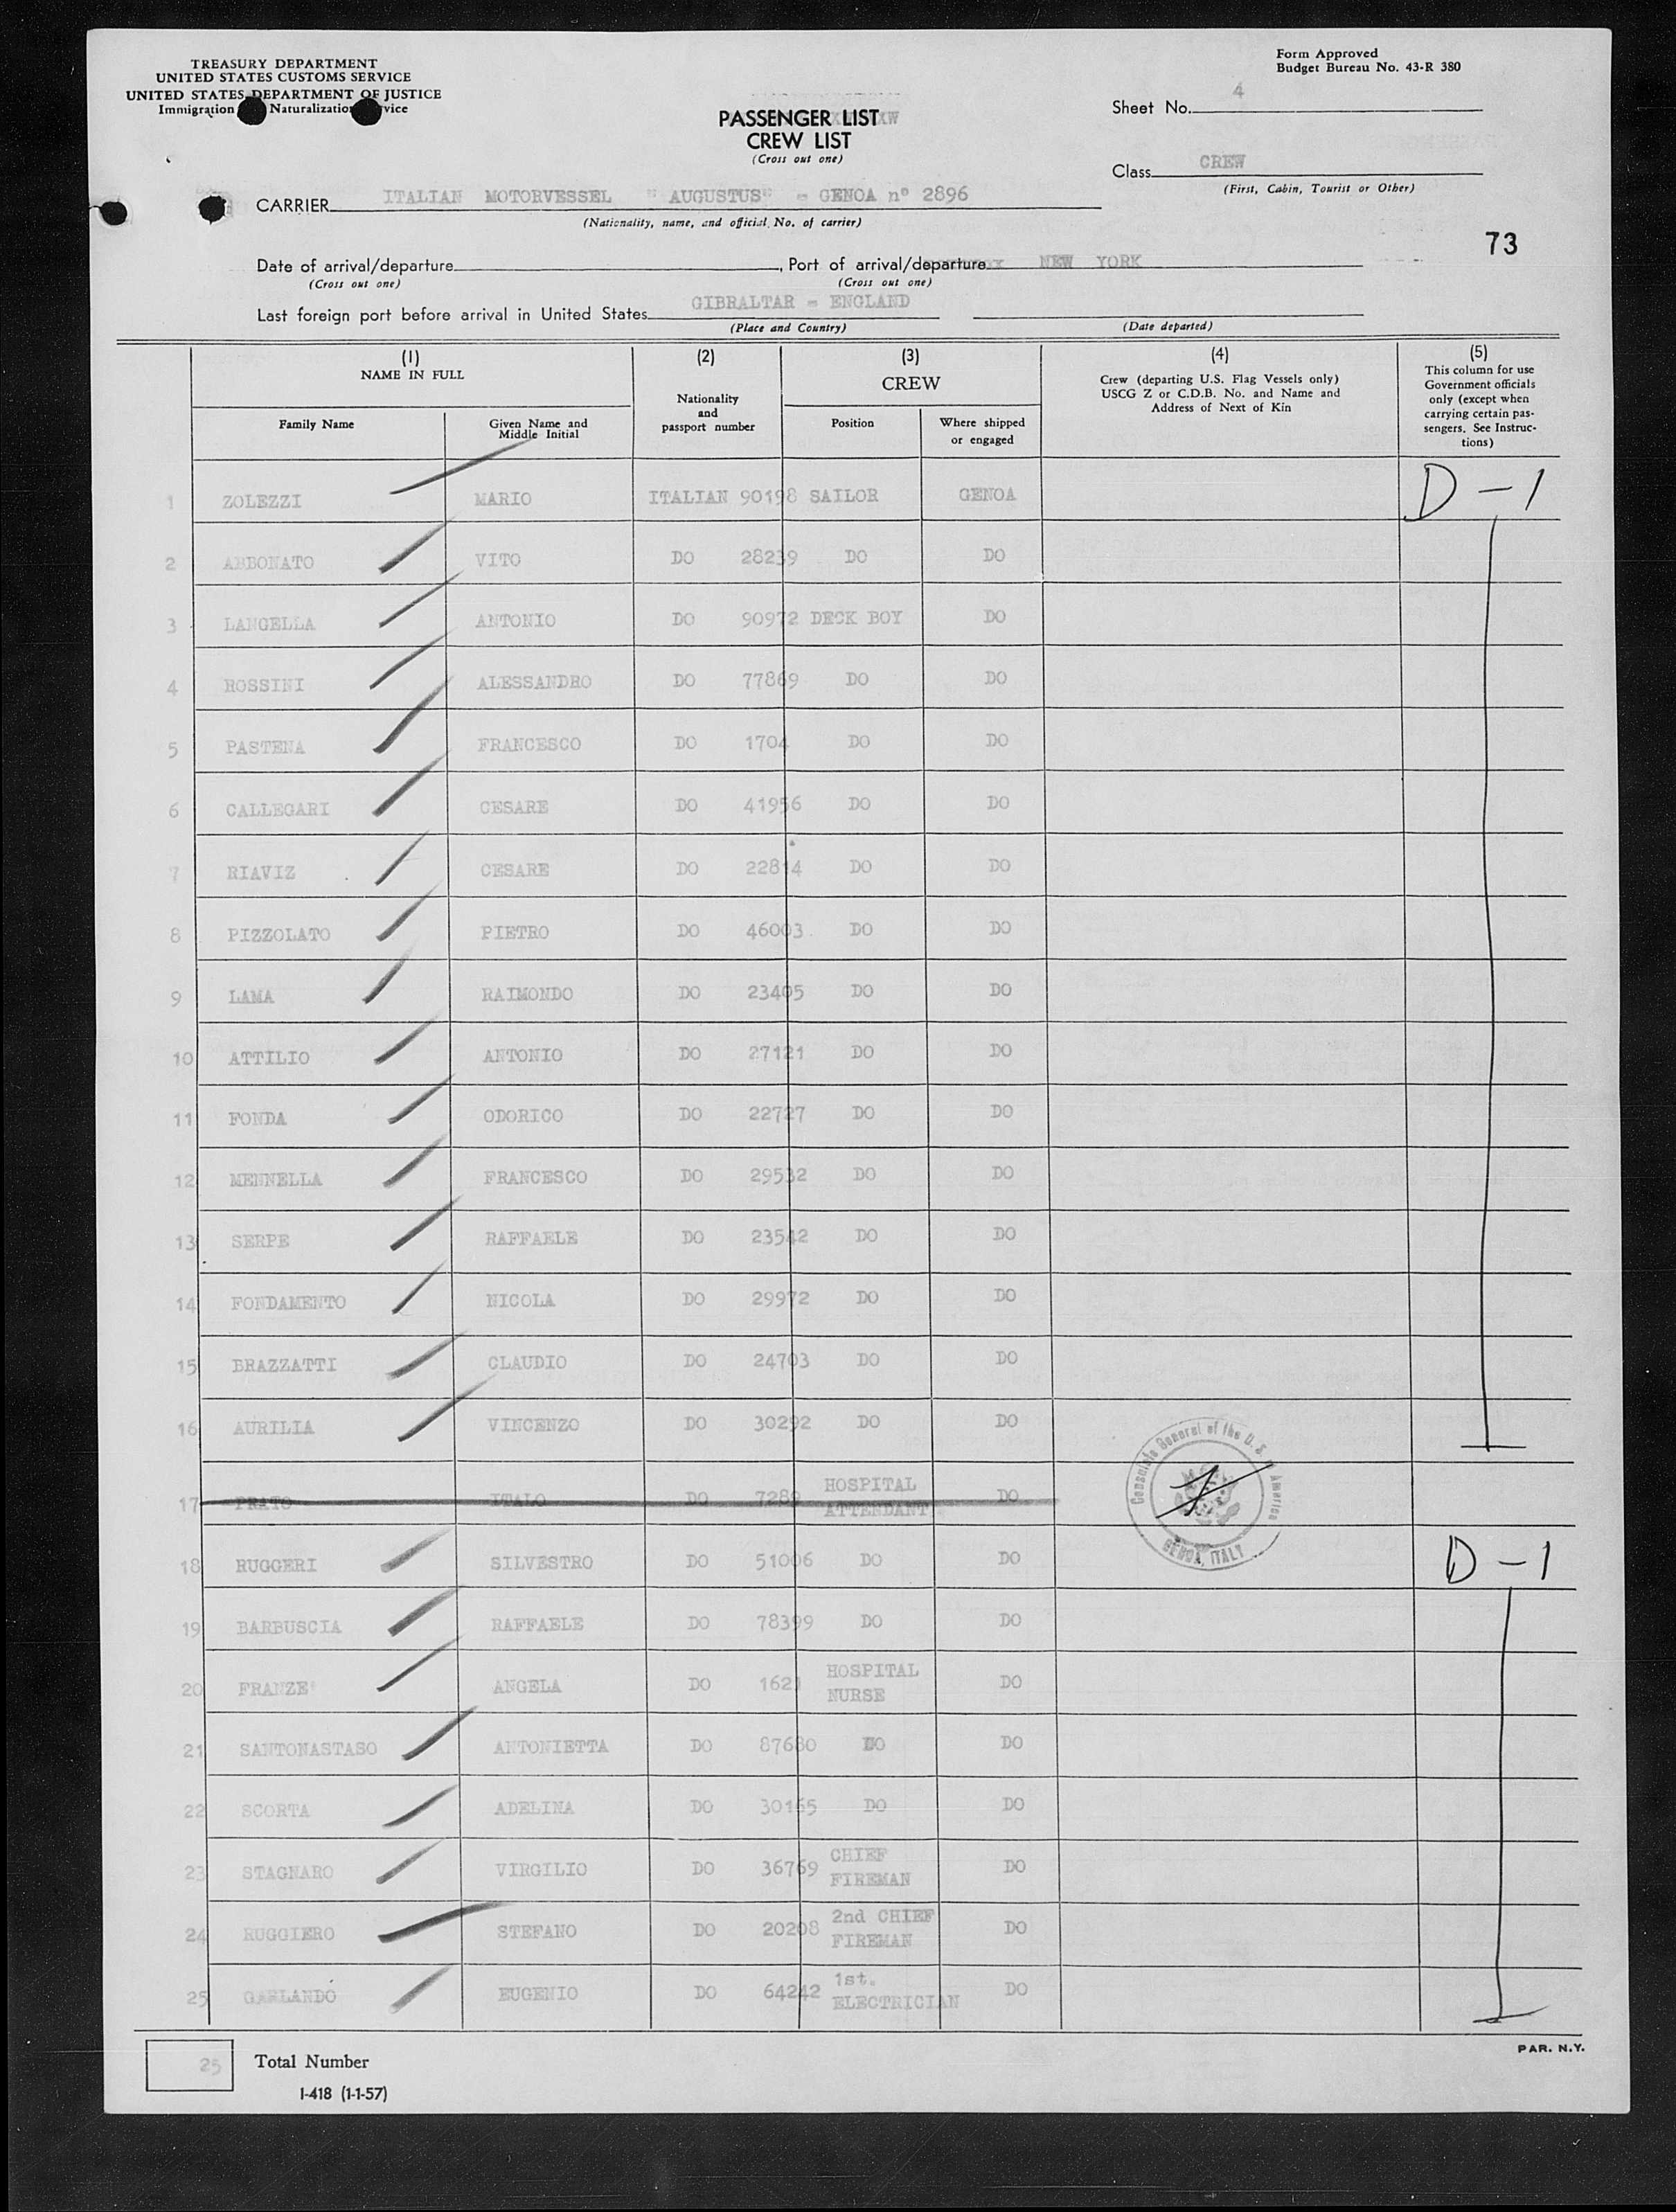 TREASURY DEPARTMENT
UNITED STATES CUSTOMS SERVICE
UNITED STATES DEPARTMENT OF JUSTICE
Immigration Naturalization Service
Form Approved
Budget Bureau No. 43-R 380
PASSENGER LIST
CREW LIST
(Cross out one)
Sheet No. 4
Class CREW
(First, Cabin, Tourist or Other)
CARRIER ITALIAN MOTORVESSEL " AUGUSTUS" - GENOA nº 2896
(Nationality, name, and official No. of carrier)
73
Date of arrival/departure , Port of arrival/departure NEW YORK
(Cross out one) (Cross out one)
Last foreign port before arrival in United States GIBRALTAR - ENGLAND
(Place and Country) (Date departed)
(1) (2) (3) (4) (5)
NAME IN FULL
Family Name
Given Name and Middle Initial
Nationality and passport number
CREW
Position
Where shipped or engaged
Crew (departing U.S. Flag Vessels only)
USCG Z or C.D.B. No. and Name and
Address of Next of Kin
This column for use
Government officials
only (except when
carrying certain pas-
sengers. See Instruc-
tions)
1 ZOLEZZI MARIO ITALIAN 90198 SAILOR GENOA D-1
2 ABBONATO VITO DO 28239 DO DO
3 LANGELLA ANTONIO DO 90972 DECK BOY DO
4 ROSSINI ALESSANDRO DO 77869 DO DO
5 PASTENA FRANCESCO DO 1704 DO DO
6 CALLEGARI CESARE DO 41956 DO DO
7 RIAVIZ CESARE DO 22814 DO DO
8 PIZZOLATO PIETRO DO 46003 DO DO
9 LAMA RAIMONDO DO 23405 DO DO
10 ATTILIO ANTONIO DO 27121 DO DO
11 FONDA ODORICO DO 22727 DO DO
12 MENNELLA FRANCESCO DO 29532 DO DO
13 SERPE RAFFAELE DO 23542 DO DO
14 FONDAMENTO NICOLA DO 29972 DO DO
15 BRAZZATTI CLAUDIO DO 24703 DO DO
16 AURILIA VINCENZO DO 30292 DO DO
17 PRATO ITALO DO HOSPITAL ATTENDANT DO
Consulate General of the U. S. America
GENOA, ITALY
18 RUGGERI SILVESTRO DO 51006 DO DO D-1
19 BARBUSCIA RAFFAELE DO 78399 DO DO
20 FRANZE' ANGELA DO 1621 HOSPITAL NURSE DO
21 SANTONASTASO ANTONIETTA DO 87680 DO DO
22 SCORTA ADELINA DO 30165 DO DO
23 STAGNARO VIRGILIO DO 36769 CHIEF FIREMAN DO
24 RUGGIERO STEFANO DO 20208 2nd CHIEF FIREMAN DO
25 GARLANDO EUGENIO DO 64242 1st. ELECTRICIAN DO
25 Total Number
I-418 (1-1-57)
PAR. N.Y.